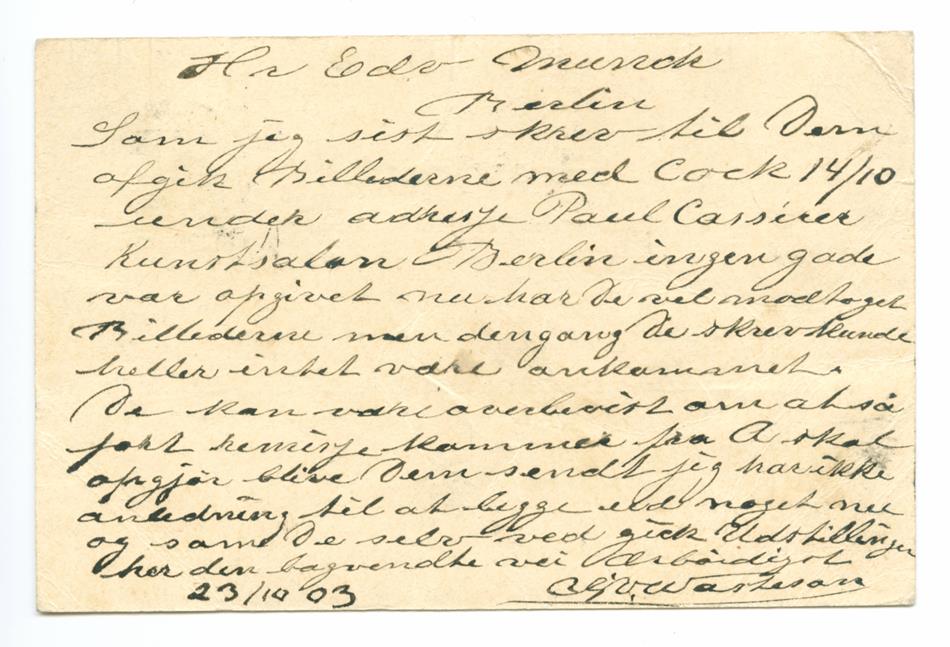 Hr Edv Munch
Berlin
Som jeg sist skrev til Dem
afgik Billederne med Cock 14/10
under adresse Paul Cassirer
Kunstsalon Berlin ingen gade
var opgivet nu har De vel modtaget
Billederne men dengang De skrev kunde
heller intet være ankommet.
De kan være overbevist om at så
fort remisse kommer fra A skal
opgjør blive Dem sendt jeg har ikke
anledning til at legge ud noget nu
og som De selv ved gick Udstillingen
her den bagvendte vei Ærbødigst
23/10 03 Wartheson